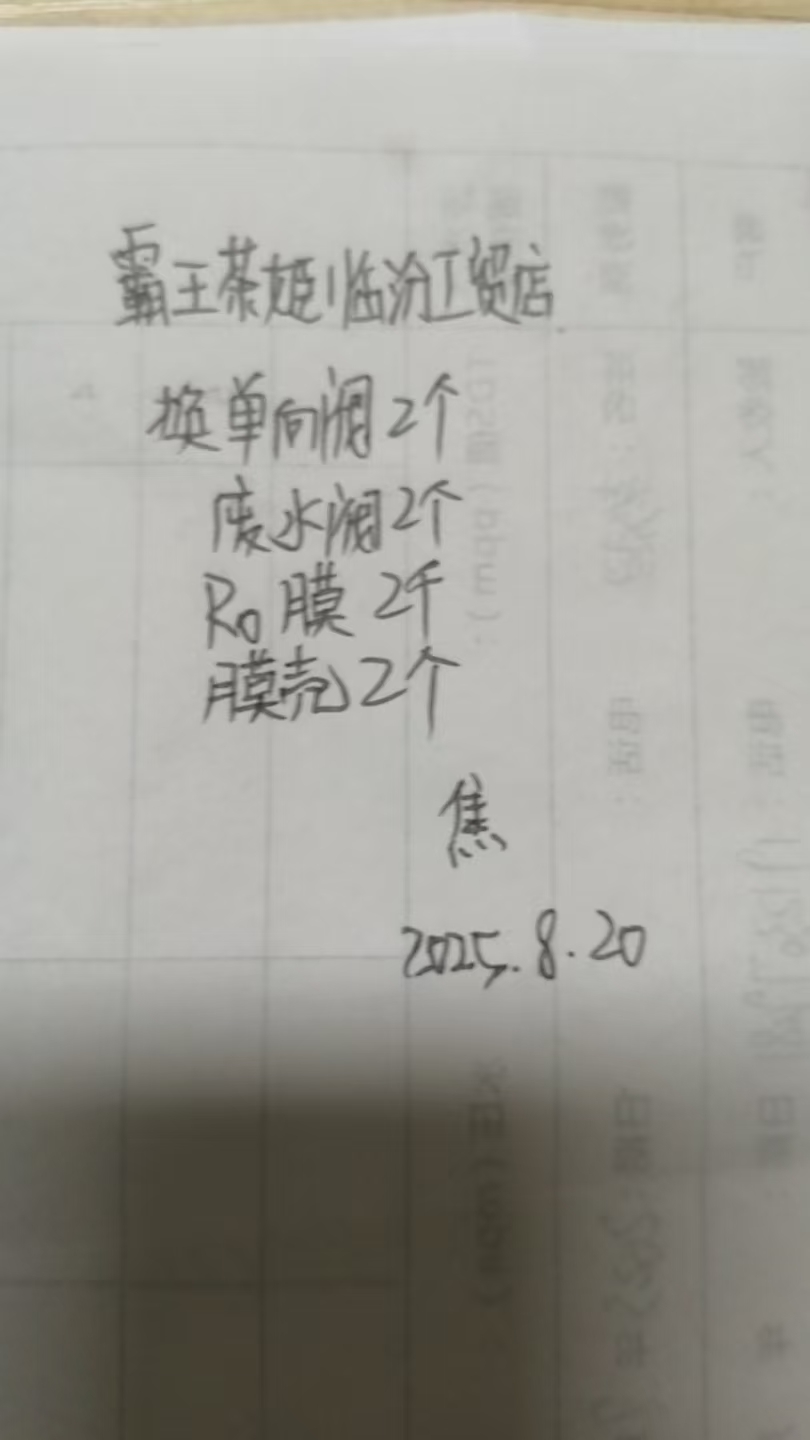 霸王茶姬临汾工贸店
换单向阀2个
废水阀2个
Ro膜 2个
膜壳2个
焦
2025.8.20